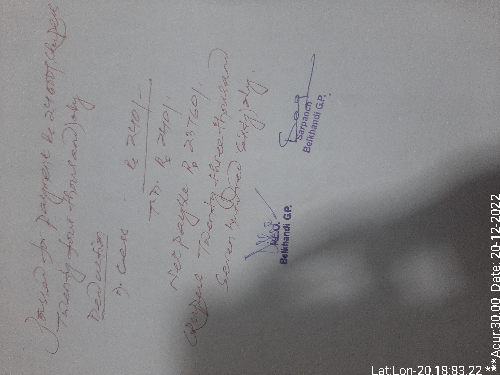 Passed for payment Rs 24000/- (Rupees
Twenty four thousand) only
Deduction
% cess - Rs 240/-
TD. Rs 240/-
Net payble Rs 23760/-
(Rupees Twenty three thousand
Seven hundred sixty) only.
P.E.O.
Belkhandi G.P.
Sarpanch
Belkhandi G.P.
Lat:Lon-20.18:83.22
**Acur:30.00 Date: 20-12-2022